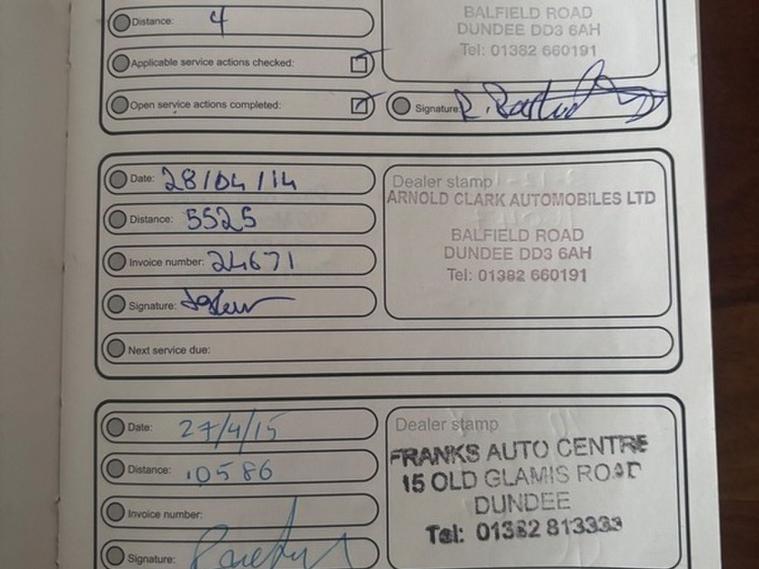 Distance: 4
BALFIELD ROAD
DUNDEE DD3 6AH
Tel: 01382 660191
Applicable service actions checked:
Open service actions completed:
Signature:
Date: 28/04/14
Dealer stamp
ARNOLD CLARK AUTOMOBILES LTD
Distance: 5525
BALFIELD ROAD
DUNDEE DD3 6AH
Invoice number: 24671
Tel: 01382 660191
Signature:
Next service due:
Date: 27/4/15
Dealer stamp
FRANKS AUTO CENTRE
Distance: 10586
15 OLD GLAMIS ROAD
DUNDEE
Invoice number:
Tel: 01382 813333
Signature: